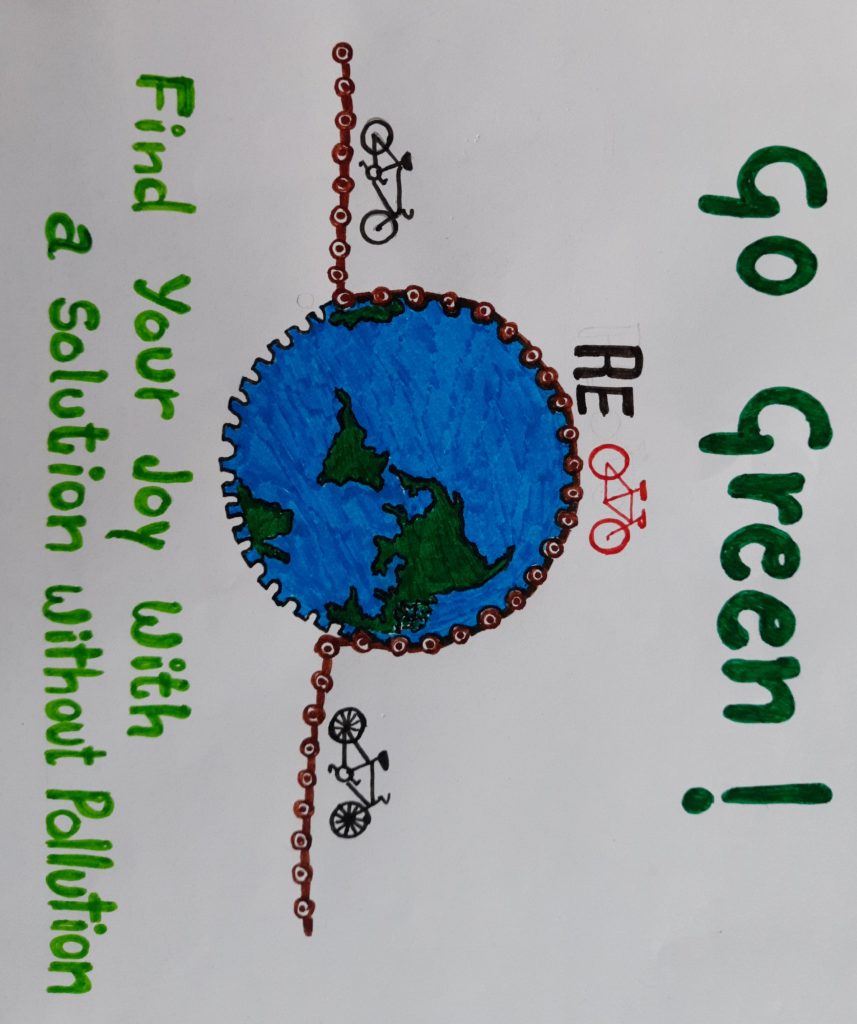 Go Green!
RE
Find Your Joy with
a Solution without Pollution